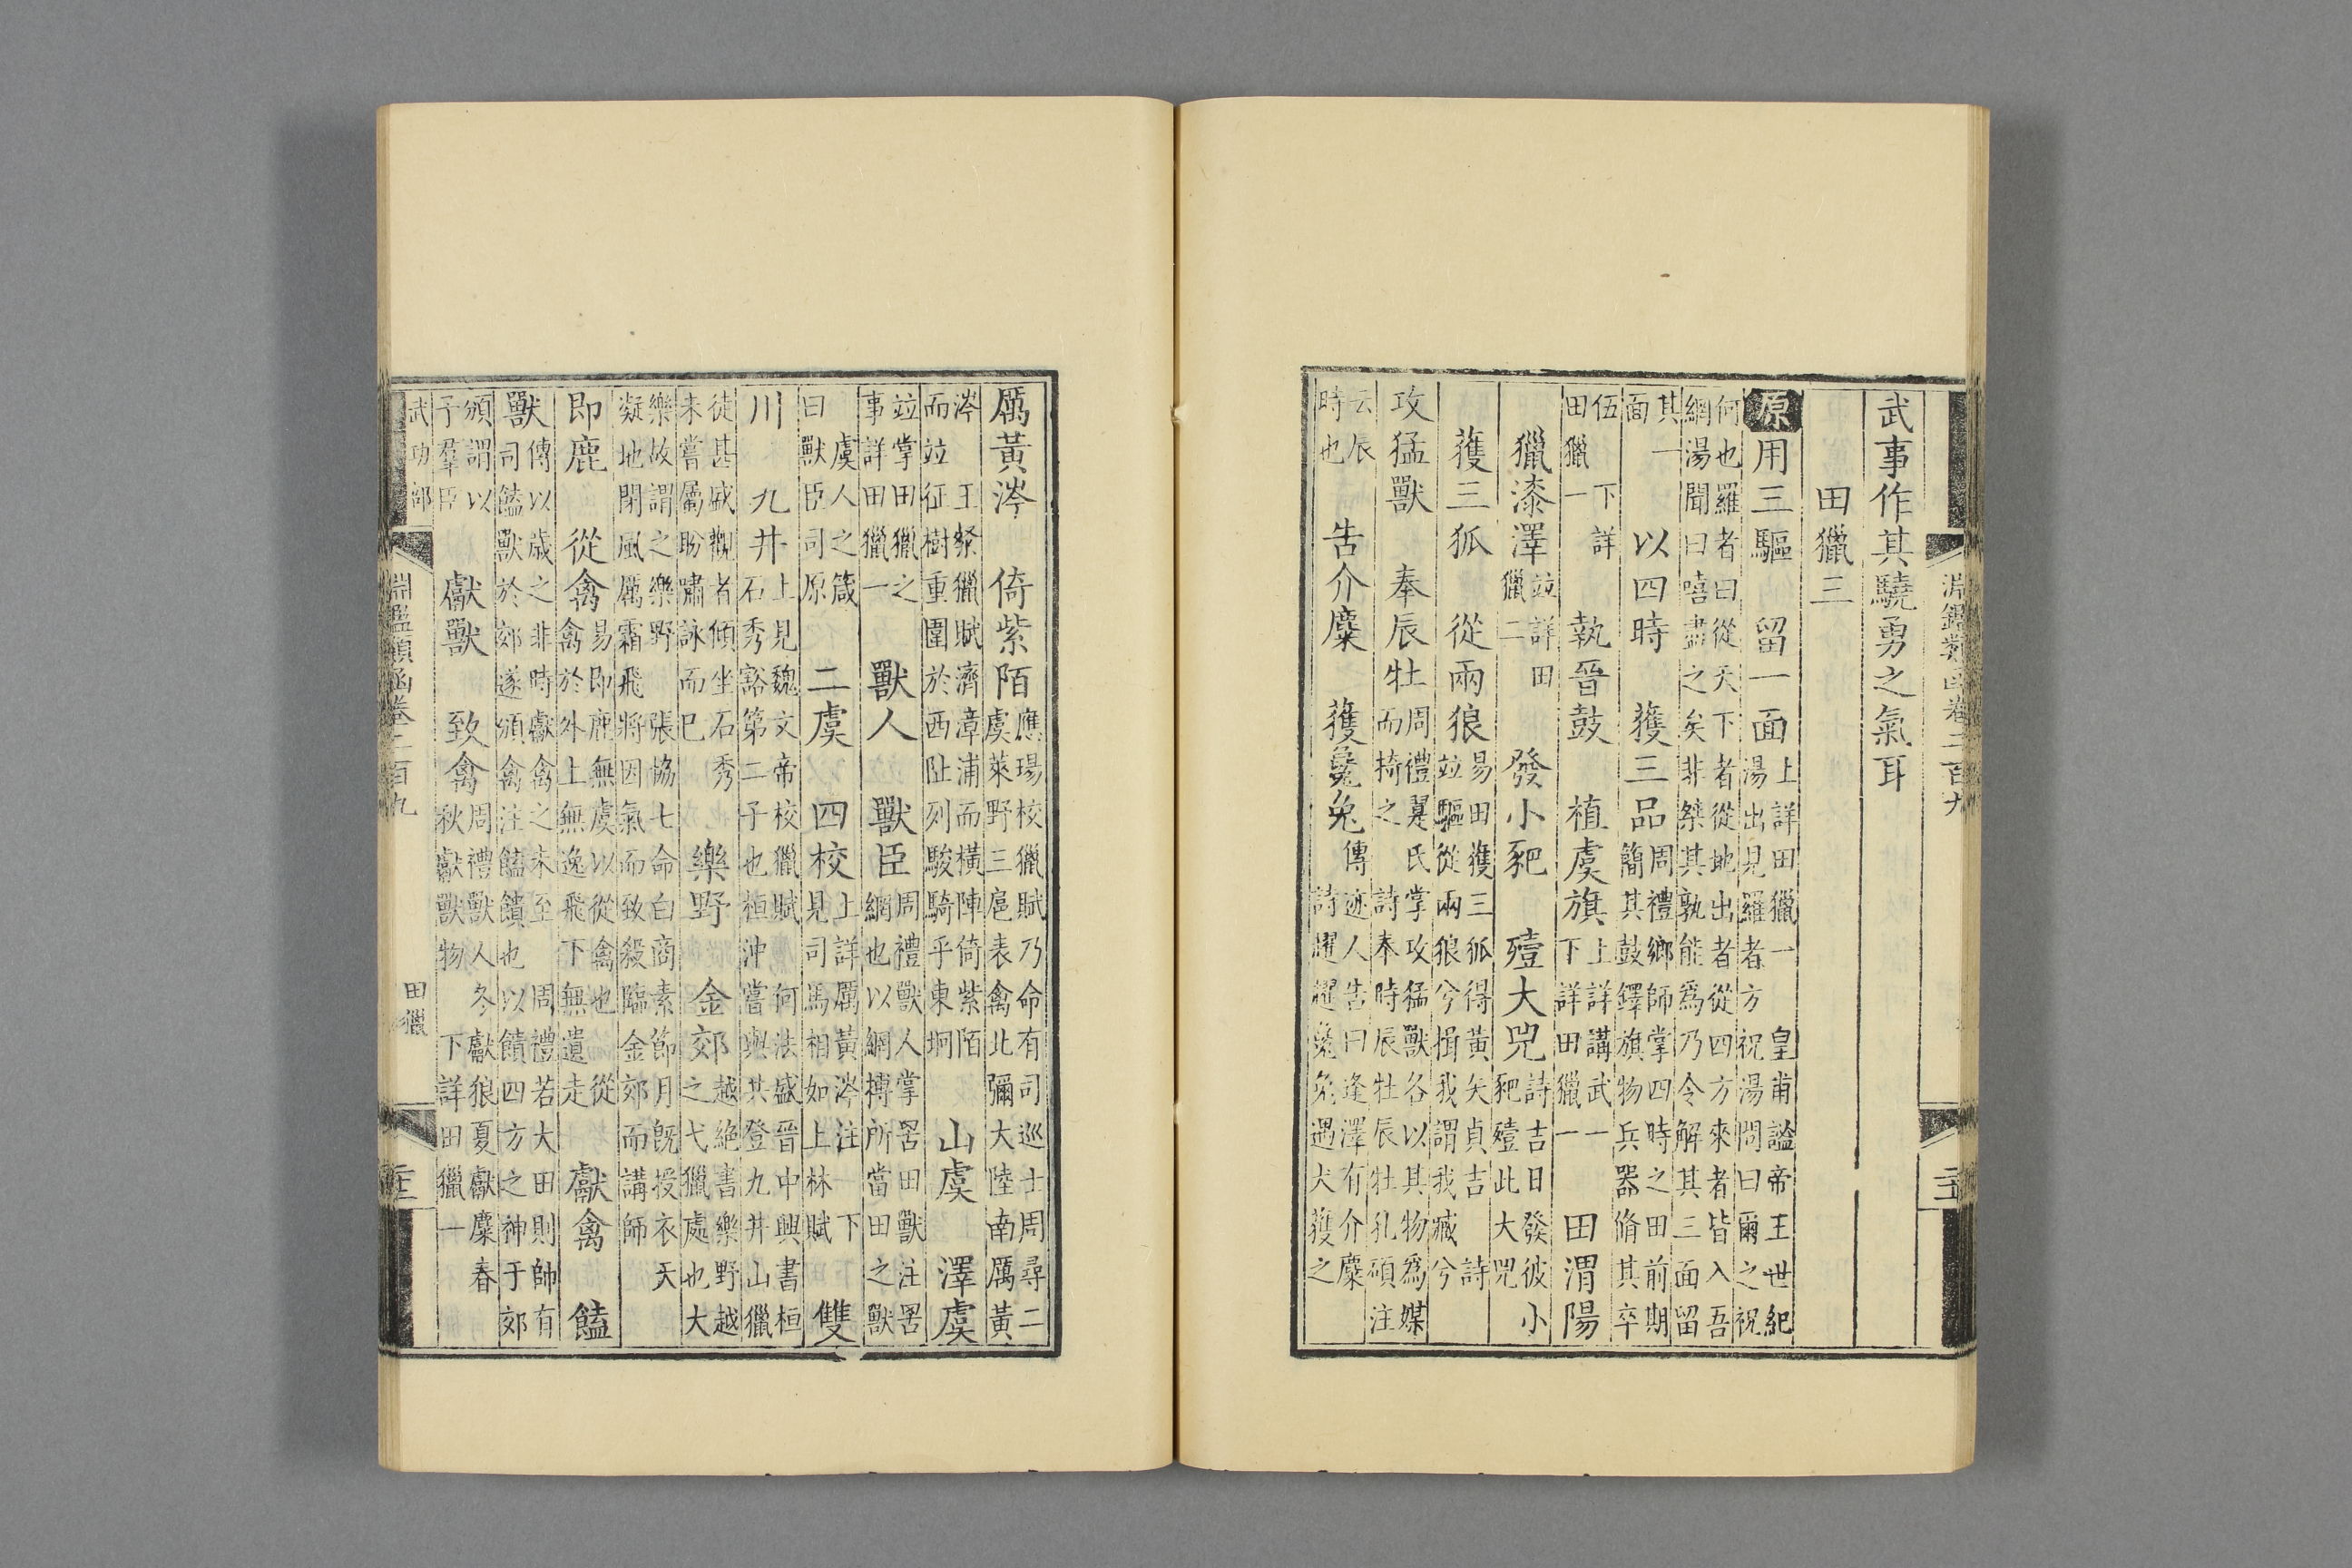 淵鑑類函卷二百九
武事作其驍勇之氣耳
田獵三
原用三驅 留一面 上詳田獵一 皇甫謐帝王世紀湯出見羅者方祝湯問曰爾之祝
何也羅者曰從天下者從地出者從四方來者皆入吾網湯聞曰嘻盡之矣非桀其孰能爲乃令解其三面留
其一面 以四時 獲三品 周禮鄉師掌四時之田前期簡其鼓鐸旗物兵器脩其卒
伍 下詳田獵一 執晉鼓 植虞旗 上詳講武一下詳田獵一 田渭陽
獵漆澤 竝詳田獵二 發小豝 殪大兕 詩吉日發彼小豝殪此大兕
獲三狐 從兩狼 易田獲三狐得黃矢貞吉 詩竝驅從兩狼兮揖我謂我臧兮
攻猛獸 奉辰牡 周禮翨氏掌攻猛獸各以其物爲媒而掎之 詩奉時辰牡辰牡孔碩注
云辰時也 告介麋 獲毚兔 傳迹人告曰逢澤有介麋詩躍躍毚兔遇犬獲之
厲黃涔 倚紫陌 應瑒校獵賦乃命有司巡士周尋二虞萊野三扈表禽北彌大陸南厲黃
涔 王粲獵賦濟漳浦而橫陣倚紫陌而竝征樹重圍於西阯列駿騎乎東坰 山虞 澤虞
竝掌田獵之事詳田獵一 獸人 獸臣 周禮獸人掌罟田獸注罟網也以網搏所當田之獸
虞人之箴曰獸臣司原 二虞 四校 上詳厲黃涔注一下見司馬相如上林賦 雙
川 九井 上見魏文帝校獵賦 何法盛晉中興書桓石秀豁第二子也桓沖嘗與其登九井山獵
徒甚盛觀者傾坐石秀未嘗屬盼嘯詠而已 樂野 金郊 越絕書樂野越之弋獵處也大
樂故謂之樂野 張協七命白商素節月旣授衣天凝地閉風厲霜飛將因氣而致殺臨金郊而講師
即鹿 從禽 易即鹿無虞以從禽也 從禽於外上無逸飛下無遺走 獻禽 饁
獸 傳以歲之非時獻禽之未至 周禮若大田則帥有司饁獸於郊遂頒禽注饁饋也以饋四方之神于郊
頒謂以予羣臣 獻獸 致禽 周禮獸人冬獻狼夏獻麋春秋獻獸物 下詳田獵一
武功部 淵鑑類函卷二百九 田獵